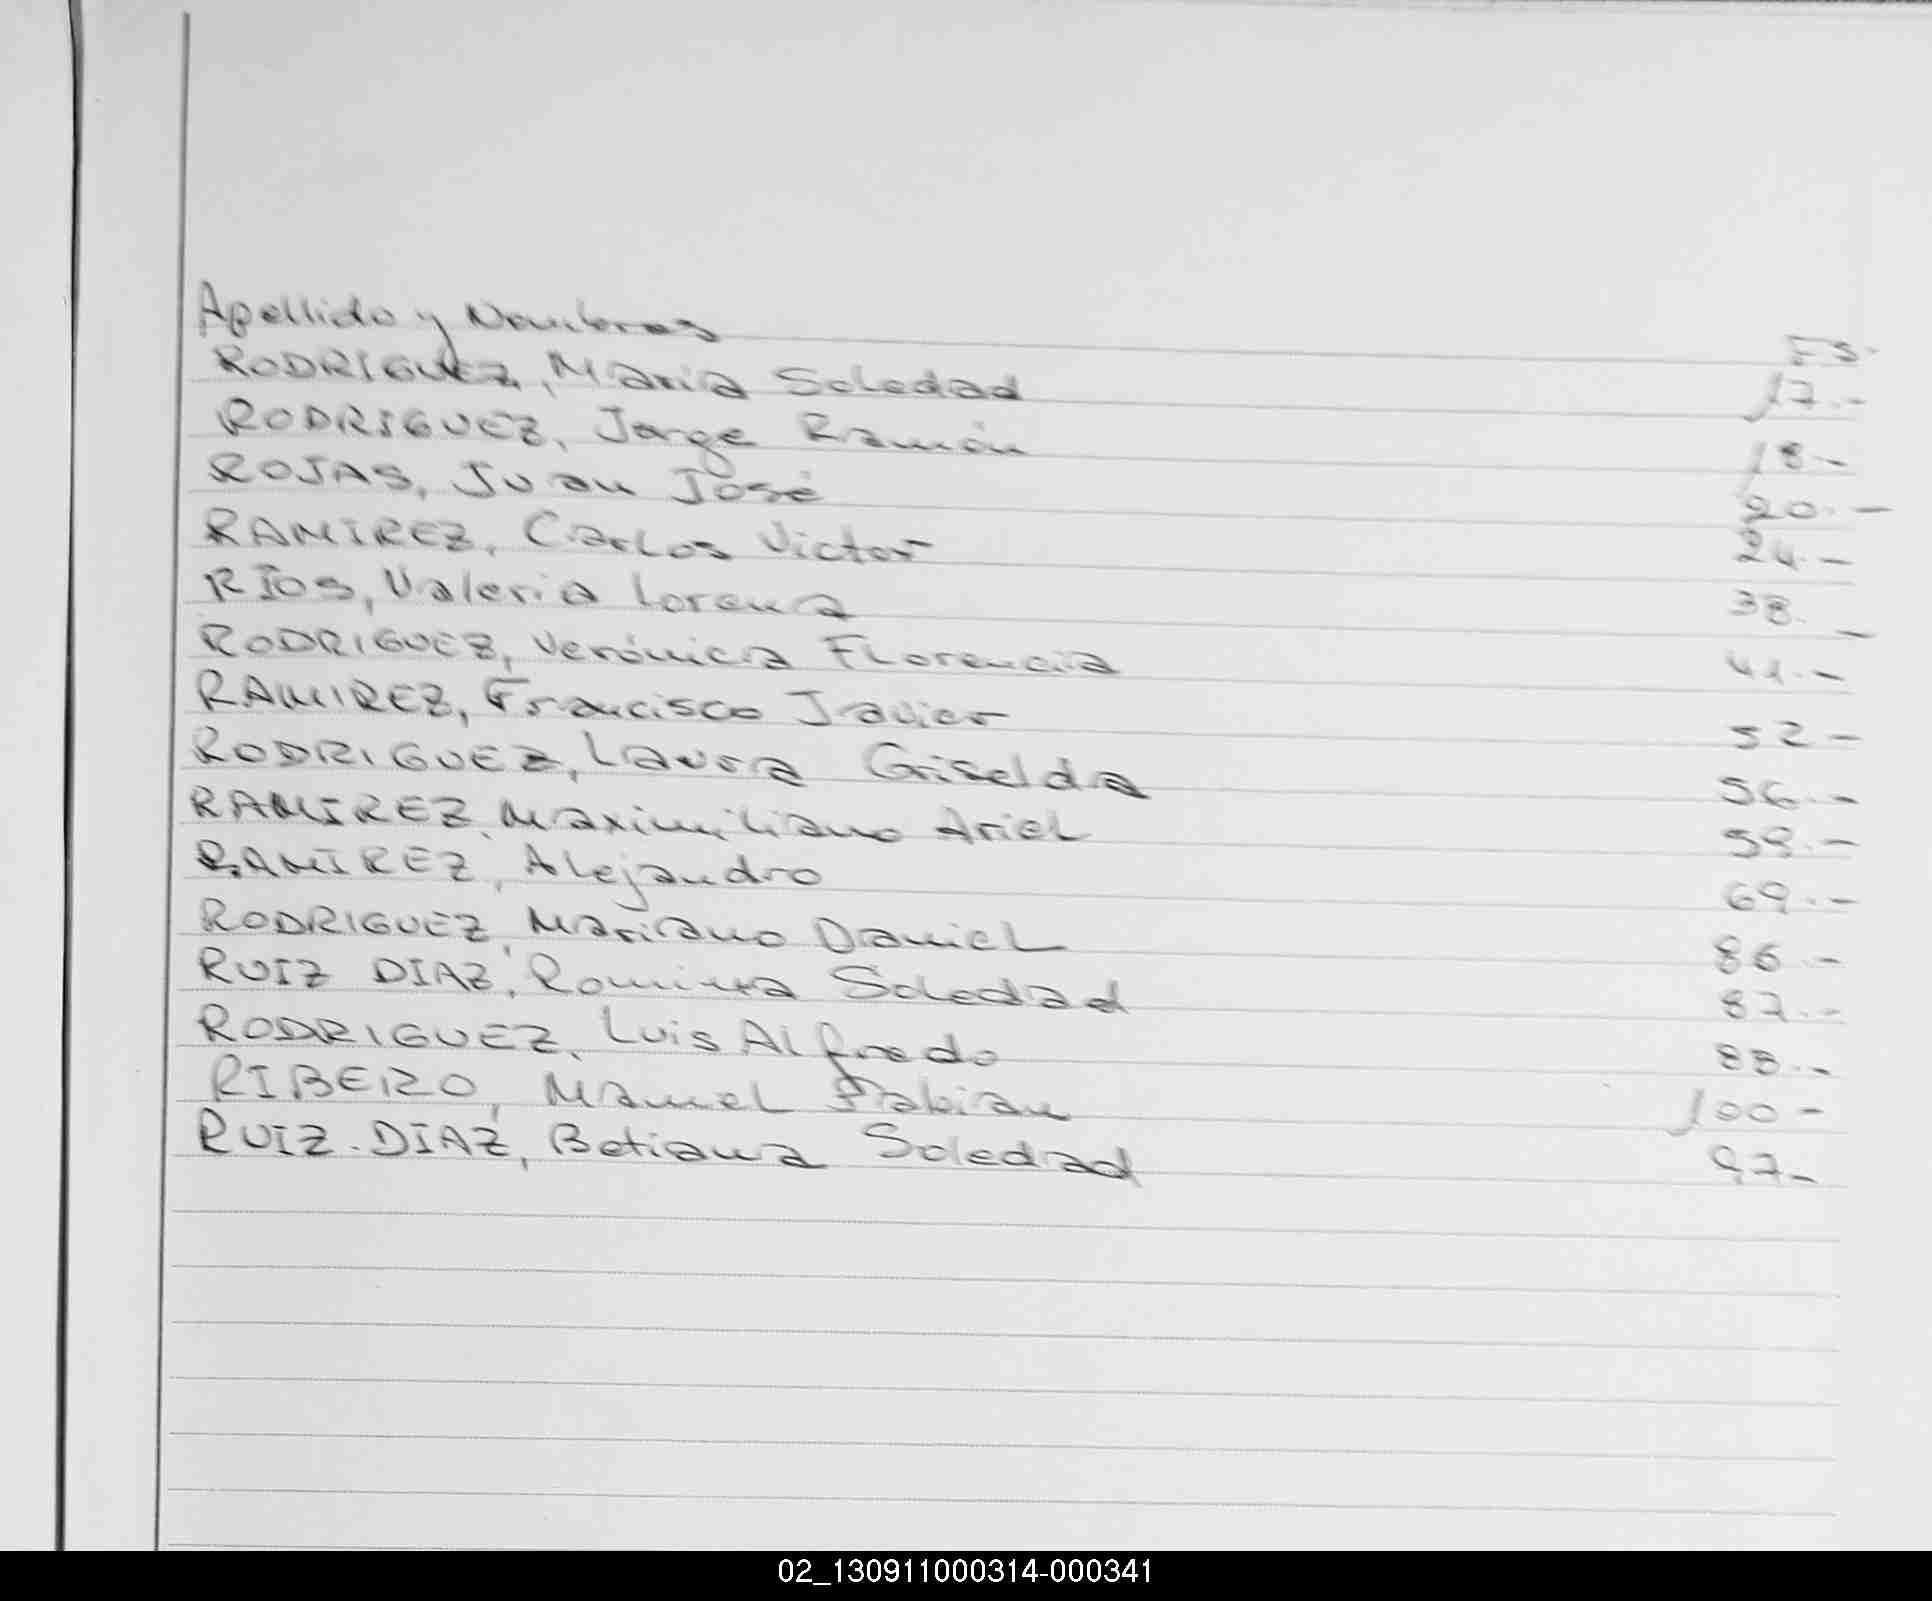 Apellido y Nombres FS.
RODRIGUEZ, Maria Soledad 17.-
RODRIGUEZ, Jorge Ramón 18.-
ROJAS, Juan José 20.-
RAMIREZ, Carlos Victor 24.-
RIOS, Valeria Lorena 38.-
RODRIGUEZ, Verónica Florencia 41.-
RAMIREZ, Francisco Javier 52-
RODRIGUEZ, Laura Griselda 56.-
RAMIREZ, Maximiliano Ariel 59.-
RAMIREZ, Alejandro 69.-
RODRIGUEZ, Mariano Daniel 86.-
RUIZ DIAZ, Romina Soledad 87.-
RODRIGUEZ, Luis Alfredo 88.-
RIBEIRO, Manuel Fabian 100-
RUIZ.DIAZ, Betiana Soledad 97-
02_130911000314-000341